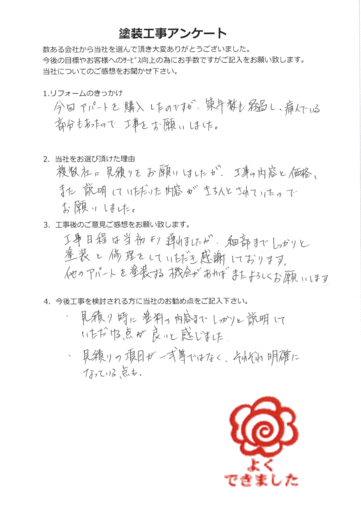 塗装工事アンケート
数ある会社から当社を選んで頂き大変ありがとうございました。
今後の目標やお客様へのｻｰﾋﾞｽ向上の為にお手数ですがご記入をお願い致します。
当社についてのご感想をお聞かせ下さい。
1.リフォームのきっかけ
今回アパートを購入したのですが、築年数も経過し、痛んでいる
部分もあったので工事をお願いしました。
2．当社をお選び頂けた理由
複数社に見積りをお願いしましたが、工事の内容と価格、
また説明していただいた内容がきちんとされていたので
お願いしました。
3．工事後のご意見ご感想をお願い致します。
工事日程は当初より遅れましたが、細部までしっかりと
塗装と修理をしていただき感謝しております。
他のアパートを塗装する機会があればまたよろしくお願いします
4．今後工事を検討される方に当社のお勧め点をご記入下さい。
・見積り時に塗料の内容までしっかりと説明して
いただける点が良いと感じました
・見積りの項目が一式等ではなく、それぞれ明確に
なっている点も。
よく
できました